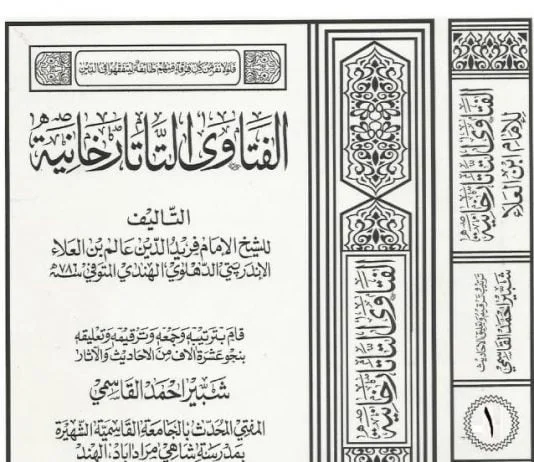 فلولا نفر من كل فرقة منهم طائفة ليتفقهوا في الدين
الفتاوى التاتارخانية
التأليف
للشيخ الإمام فريد الدين عالم بن العلاء
الاندربتي الدهلوي الهندي المتوفى سنة ٧٨٦ هـ
قام بترتيبه وجمعه وترقيمه وتعليقه
بنحو عشرة آلاف من الاحاديث والآثار
شبير احمد القاسمي
المفتي المحدث بالجامعة القاسمية الشهيرة
بمدرسة شاهي مراداباد، الهند
الفتاوى التاتارخانية
الفتاوى التاتارخانية
للإمام ابن العلاء
شبير احمد القاسمي
١